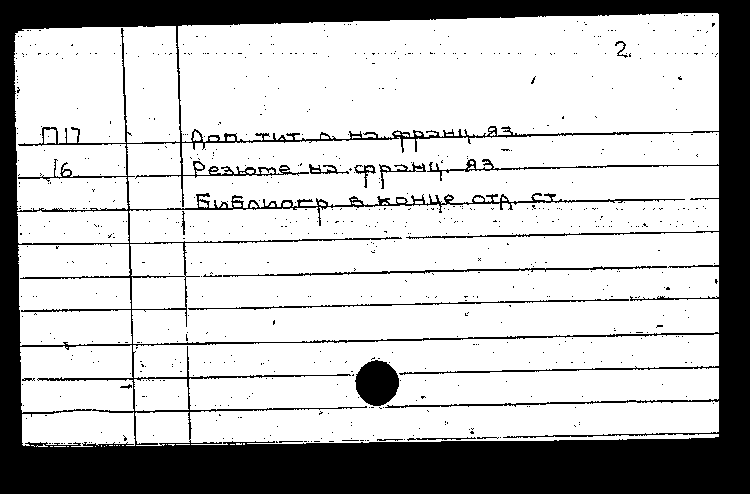 2.
П17 Доп. тит. л. на франц. яз.
16 Резюме на франц. яз.
Библиогр. в конце отд. ст.